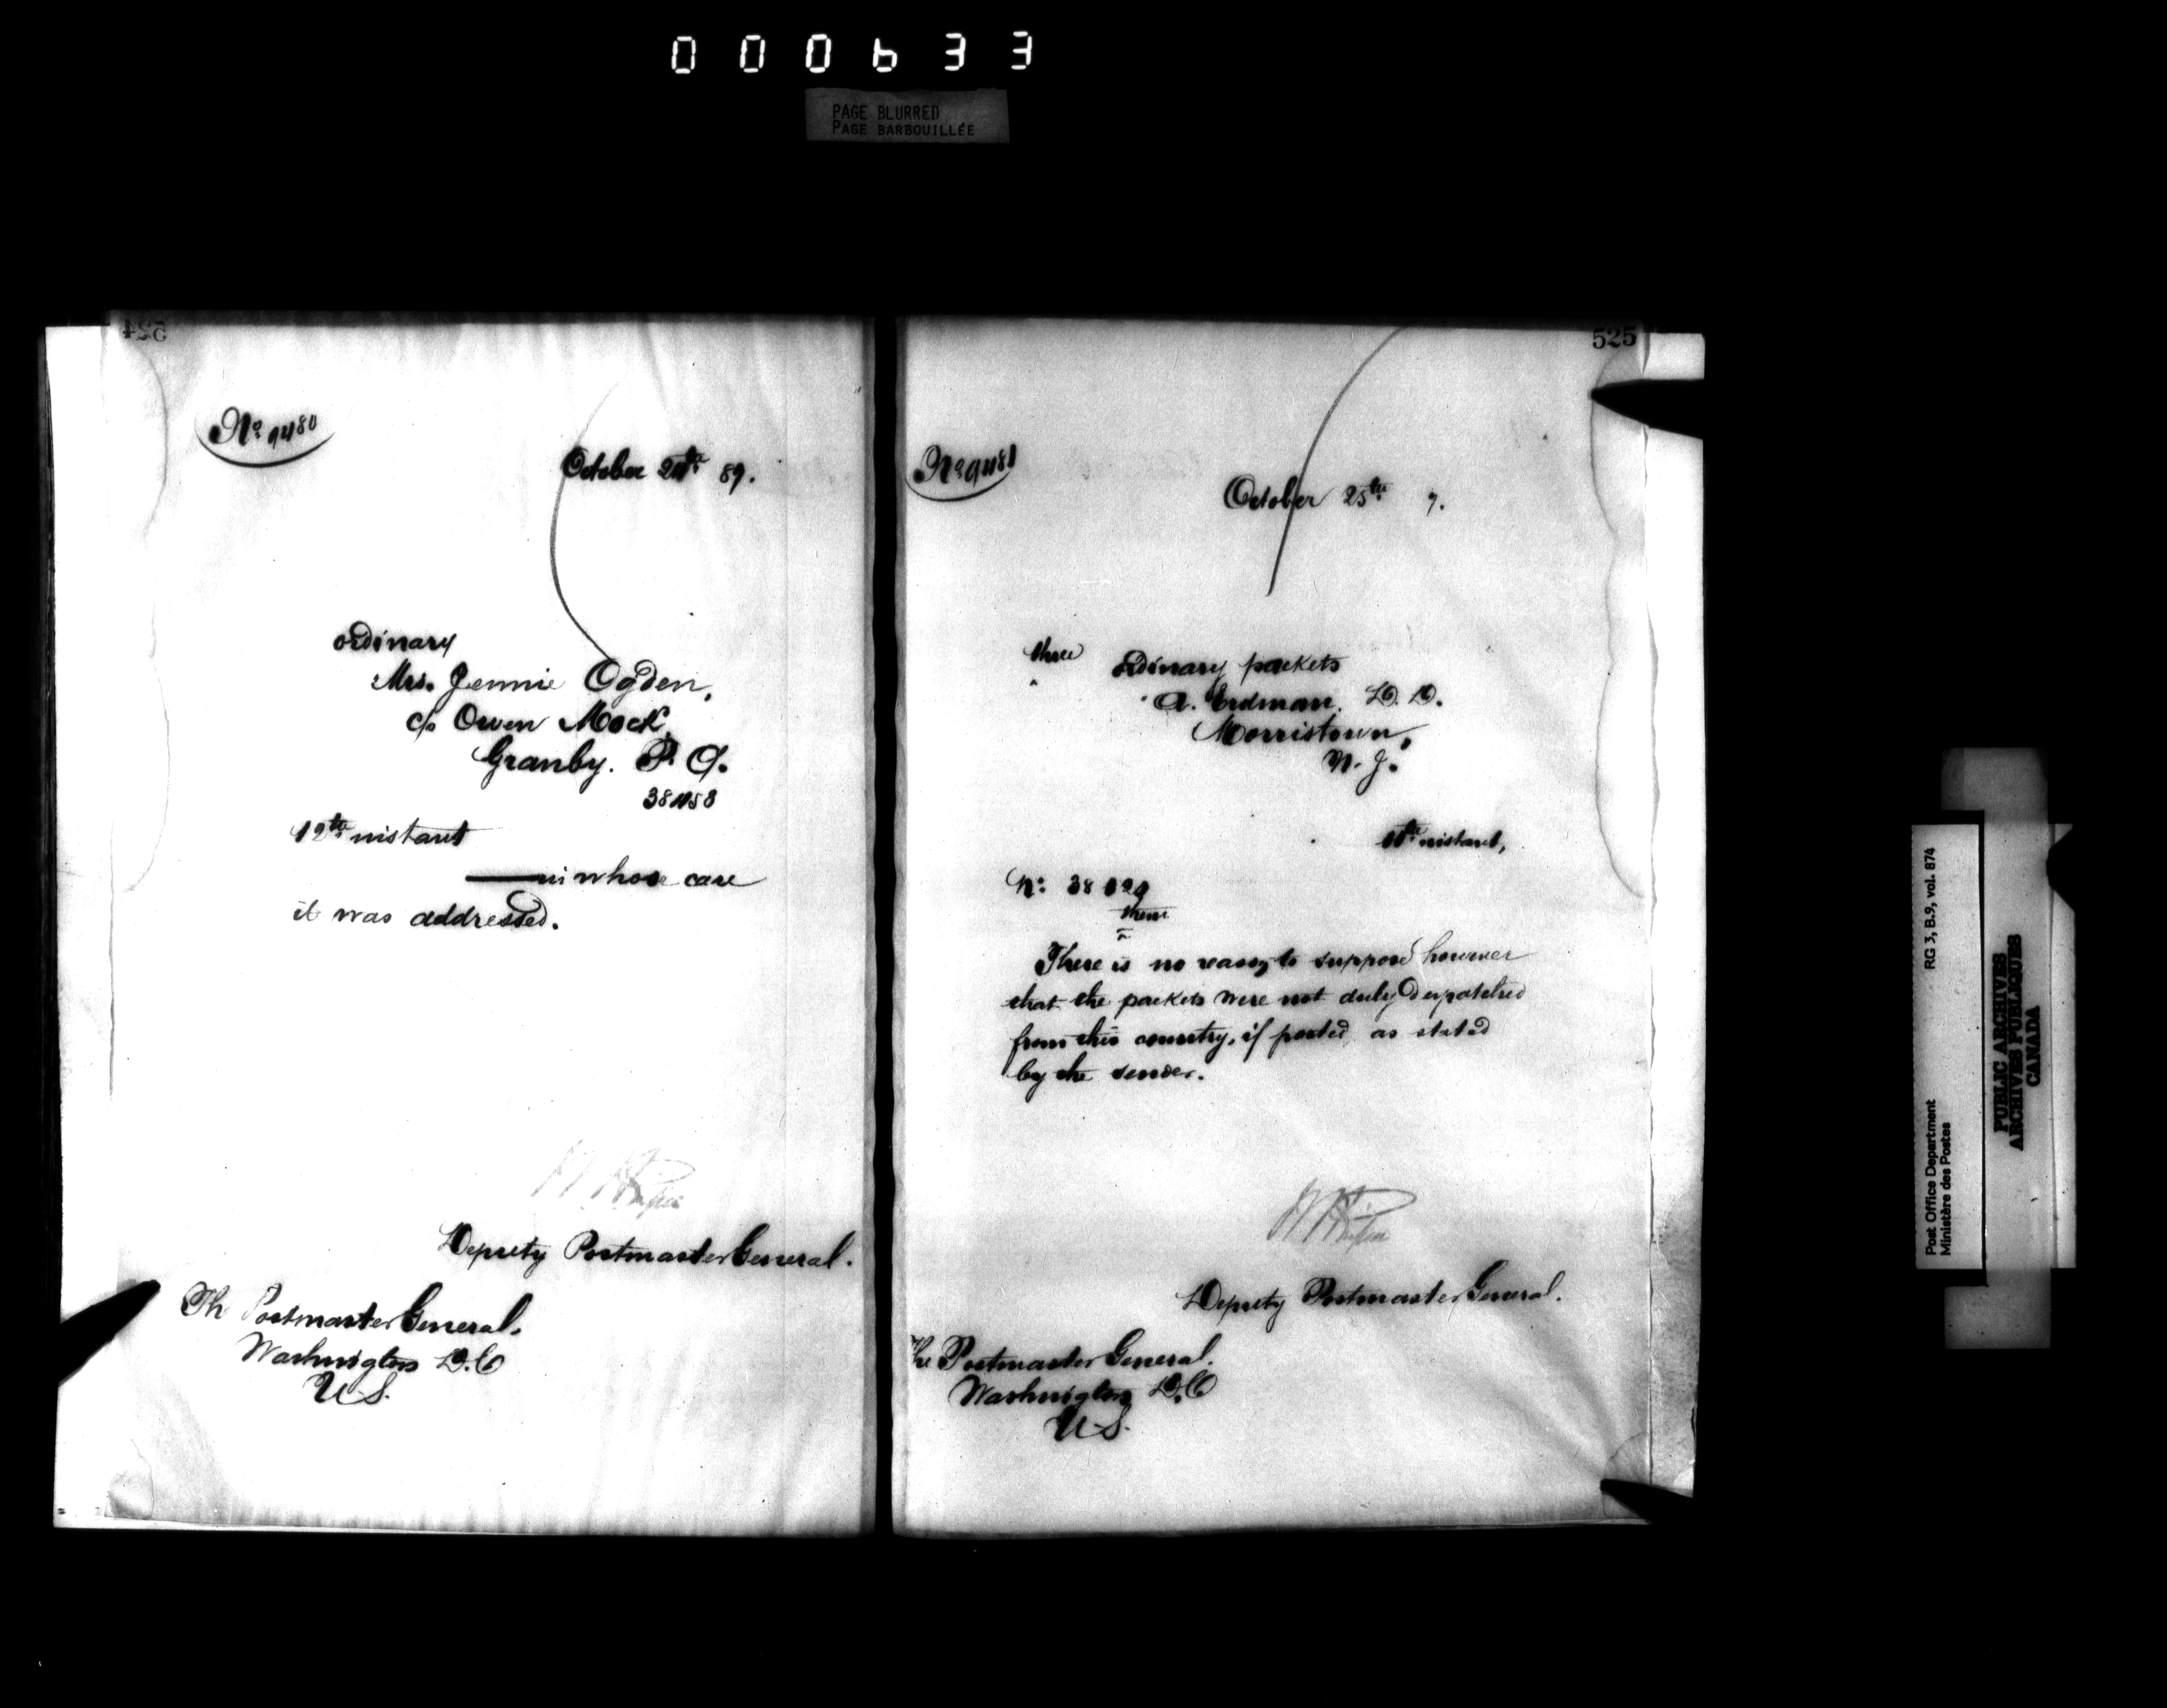 000633
PAGE BLURRED
PAGE BARBOUILLÉE
524
No 9480
October 24th 89.
ordinary
Mrs. Jennie Ogden,
c/o Owen Mock,
Granby. P. Q.
12th instant
in whose care
it was addressed.
Deputy Postmaster General.
The Postmaster General.
Washington D.C
U.S.
525
No 9481
October 25th 9.
three ordinary packets
A. Erdman. D. D.
Morristown,
N. J.
instant,
No 38
them
There is no reason to suppose however
that the packets were not duly despatched
from this country, if posted as stated
by the sender.
Deputy Postmaster General.
The Postmaster General.
Washington D.C
U.S.
Post Office Department RG 3, B.9, vol. 874
Ministère des Postes
PUBLIC ARCHIVES
ARCHIVES PUBLIQUES
CANADA